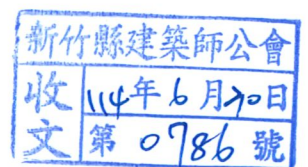 新竹縣建築師公會
收文
114年6月20日
第 0786 號